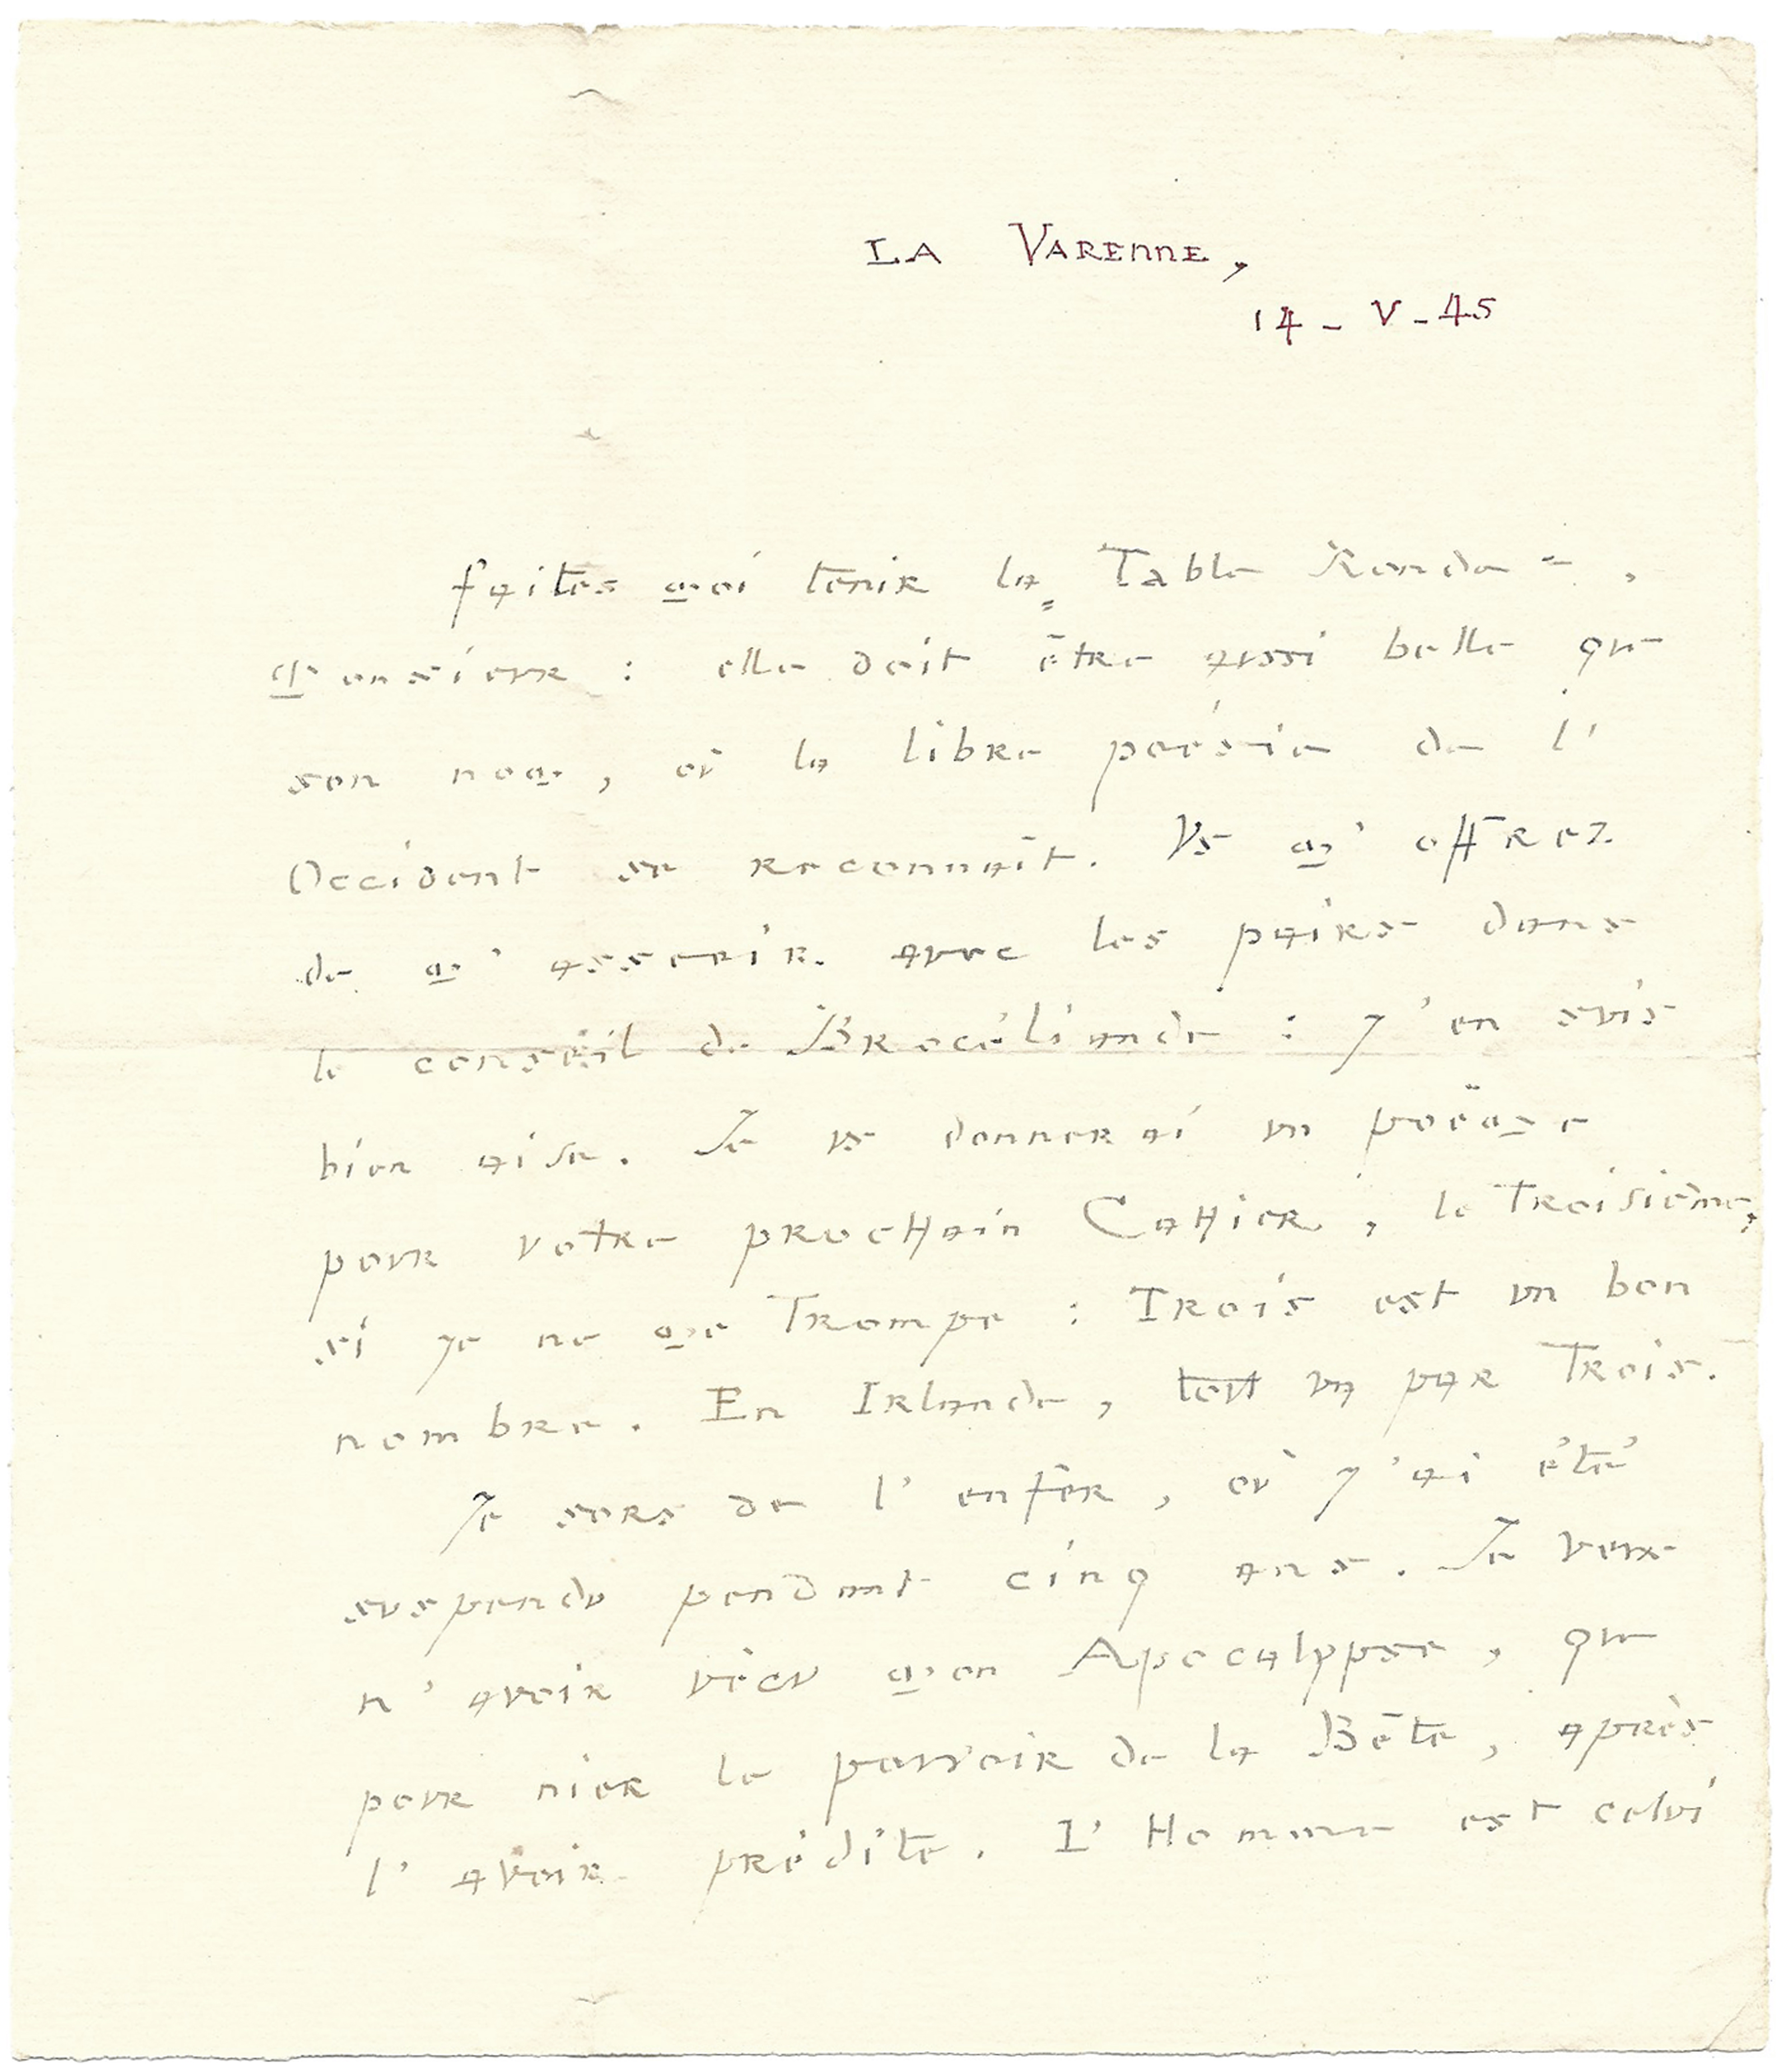 LA VARENNE,
14 - V - 45
Faites moi tenir la Table Ronde,
Monsieur : elle doit être aussi belle que
son nom, où la libre poésie de l'
Occident se reconnaît. Vs m'offrez
de m'asseoir avec les pairs dans
le conseil de Brocéliande : j'en suis
bien aise. Je vs donnerai un poëme
pour votre prochain Cahier, le Troisième,
si je ne me Trompe : Trois est un bon
nombre. En Irlande, tout va par Trois.
Je sors de l'enfer, où j'ai été
suspendu pendant cinq ans. Je veux
n'avoir vécu mon Apocalypse, que
pour nier le pouvoir de la Bête, après
l'avoir prédite. L'Homme est celui